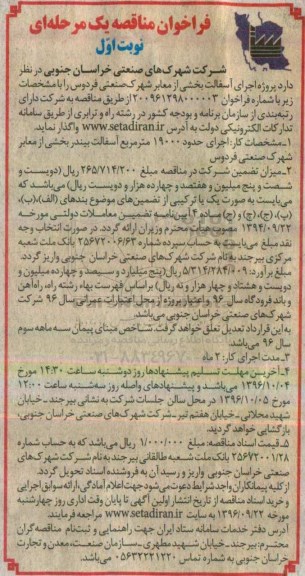 فراخوان مناقصه یک مرحله‌ای
نوبت اول
شرکت شهرک‌های صنعتی خراسان جنوبی در نظر
دارد پروژه اجرای آسفالت بخشی از معابر شهرک صنعتی فردوس را با مشخصات
زیر با شماره فراخوان ۲۰۰۹۶۱۲۹۸۰۰۰۰۰۳ از طریق مناقصه به شرکت دارای
رتبه‌بندی از سازمان برنامه و بودجه کشور در رشته راه و ترابری از طریق سامانه
تدارکات الکترونیکی دولت به آدرس www.setadiran.ir واگذار نماید.
۱-مشخصات کار: اجرای حدود ۱۹۰۰۰ مترمربع آسفالت بیندر بخشی از معابر
شهرک صنعتی فردوس
۲-میزان تضمین شرکت در مناقصه مبلغ ۲۶۵/۷۱۴/۲۰۰ ریال (دویست و
شصت و پنج میلیون و هفتصد و چهارده هزار و دویست ریال) می‌باشد که
می‌بایست به صورت یک یا ترکیبی از تضمین‌های موضوع بندهای (الف)، (ب)،
(پ)، (ج)، (چ)، و (ح) ماده ۴ آیین‌نامه تضمین معاملات دولتی مورخه
۱۳۹۴/۰۹/۲۲ مصوب هیأت محترم وزیران ارائه گردد. در صورت انتخاب وجه
نقد مبلغ می‌بایست به حساب سپرده شماره ۲۵۶۷۲۰۰۶/۶۳ بانک ملت شعبه
مرکزی بیرجند به نام شرکت شهرک‌های صنعتی خراسان جنوبی واریز گردد.
مبلغ برآورد: ۵/۳۱۴/۲۸۴/۰۰۹ ریال (پنج میلیارد و سیصد و چهارده میلیون و
دویست و هشتاد و چهار هزار و نه ریال) براساس فهرست بهاء رشته راه، راه‌آهن
و باند فرودگاه سال ۹۶ و اعتبار پروژه از محل اعتبارات عمرانی سال ۹۶ شرکت
شهرک‌های صنعتی خراسان جنوبی می‌باشد.
به این قرارداد تعدیل تعلق خواهد گرفت. شاخص مبنای پیمان سه ماهه سوم
سال ۹۶ می‌باشد.
۳-مدت اجرای کار: ۲ ماه
۴-آخرین مهلت تسلیم پیشنهادها روز دوشنبه ساعت ۱۴:۳۰ مورخ
۱۳۹۶/۱۰/۰۴ می‌باشد و پیشنهادهای واصله روز سه‌شنبه ساعت ۱۲:۰۰
مورخ ۱۳۹۶/۱۰/۰۵ در محل سالن جلسات شرکت به نشانی بیرجند - خیابان
شهید محلاتی - خیابان هفتم تیر - شرکت شهرک‌های صنعتی خراسان جنوبی،
بازگشایی خواهد گردید.
۵-قیمت اسناد مناقصه: مبلغ ۱/۰۰۰/۰۰۰ ریال می‌باشد که به حساب شماره
۲۵۶۷۲۰۰۱/۲۸ بانک ملت شعبه طالقانی بیرجند به نام شرکت شهرک‌های
صنعتی خراسان جنوبی واریز و رسید آن به فروشنده اسناد تحویل گردد.
از کلیه پیمانکاران واجد شرایط دعوت می‌شود جهت اعلام آمادگی، ارائه سوابق اجرایی
و خرید اسناد مناقصه از تاریخ انتشار اولین آگهی تا پایان وقت اداری روز چهارشنبه
مورخه ۱۳۹۶/۰۹/۲۲ به سایت www.setadiran.ir مراجعه فرمایند.
آدرس دفتر خدمات سامانه ستاد ایران جهت راهنمایی و ثبت‌نام مناقصه‌گران
محترم: بیرجند - خیابان شهید مطهری - سازمان صنعت، معدن و تجارت
خراسان جنوبی به شماره تماس ۰۵۶۳۲۲۲۱۲۲۰ می‌باشد.